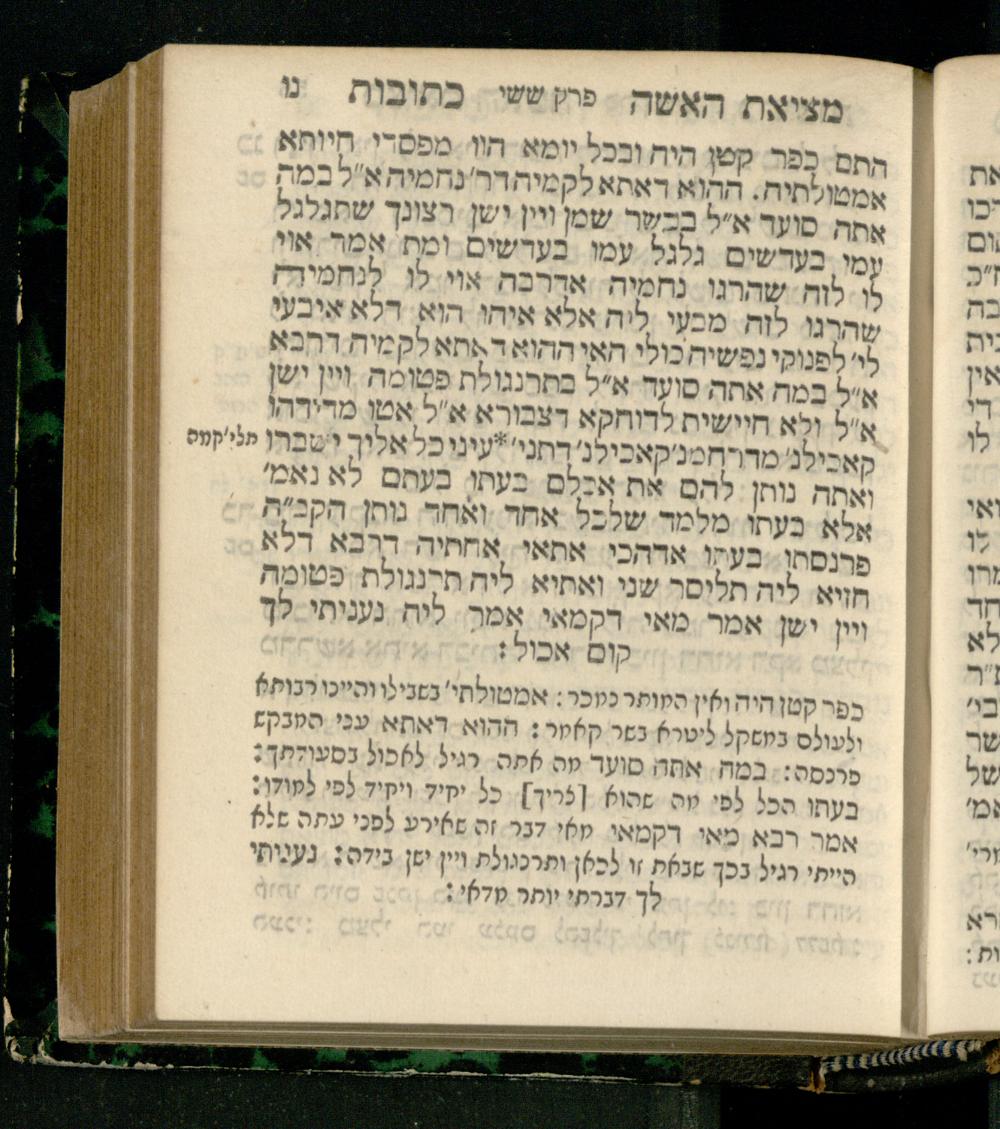 מציאת האשה פרק ששי כתובות נו
התם כפר קטן היה ובכל יומא הוו מפסדי חיותא
אמטולתיה. ההוא דאתא לקמיה דר' נחמיה א"ל במה
אתה סועד א"ל בבשר שמן ויין ישן רצונך שתגלגל
עמי בעדשים גלגל עמו בעדשים ומת אמר אוי
לו לזה שהרגו נחמיה אדרבה אוי לו לנחמיה
שהרגו לזה מבעי ליה אלא איהו הוא דלא איבעי
לי' לפנוקי נפשיה כולי האי ההוא דאתא לקמיה דרבא
א"ל במה אתה סועד א"ל בתרנגולת פטומה ויין ישן
א"ל ולא חיישית לדוחקא דצבורא א"ל אטו מדידהו
קאכילנ' מדרחמנ' קאכילנ' דתני' *עיני כל אליך ישברו תלי' קמה
ואתה נותן להם את אכלם בעתו בעתם לא נאמ'
אלא בעתו מלמד שלכל אחד ואחד נותן הקב"ה
פרנסתו בעתו אדהכי אתאי אחתיה דרבא דלא
חזיא ליה תליסר שני ואתיא ליה תרנגולת פטומה
ויין ישן אמר מאי דקמאי אמר ליה נעניתי לך
קום אכול:
כפר קטן היה ואין המותר נמכר: אמטולתי' בשבילו והיינו רבותא
ולעולם במשקל ליטרא בשר קאמר: ההוא דאתא עני המבקש
פרנסה: במה אתה סועד מה אתה רגיל לאכול בסעודתך:
בעתו הכל לפי מה שהוא [צריך] כל יחיד ויחיד לפי למודו:
אמר רבא מאי דקמאי מאי דבר זה שאירע לפני עתה שלא
הייתי רגיל בכך שבאת זו לכאן ותרנגולת ויין ישן בידה: נעניתי
לך דברתי יותר מדאי: